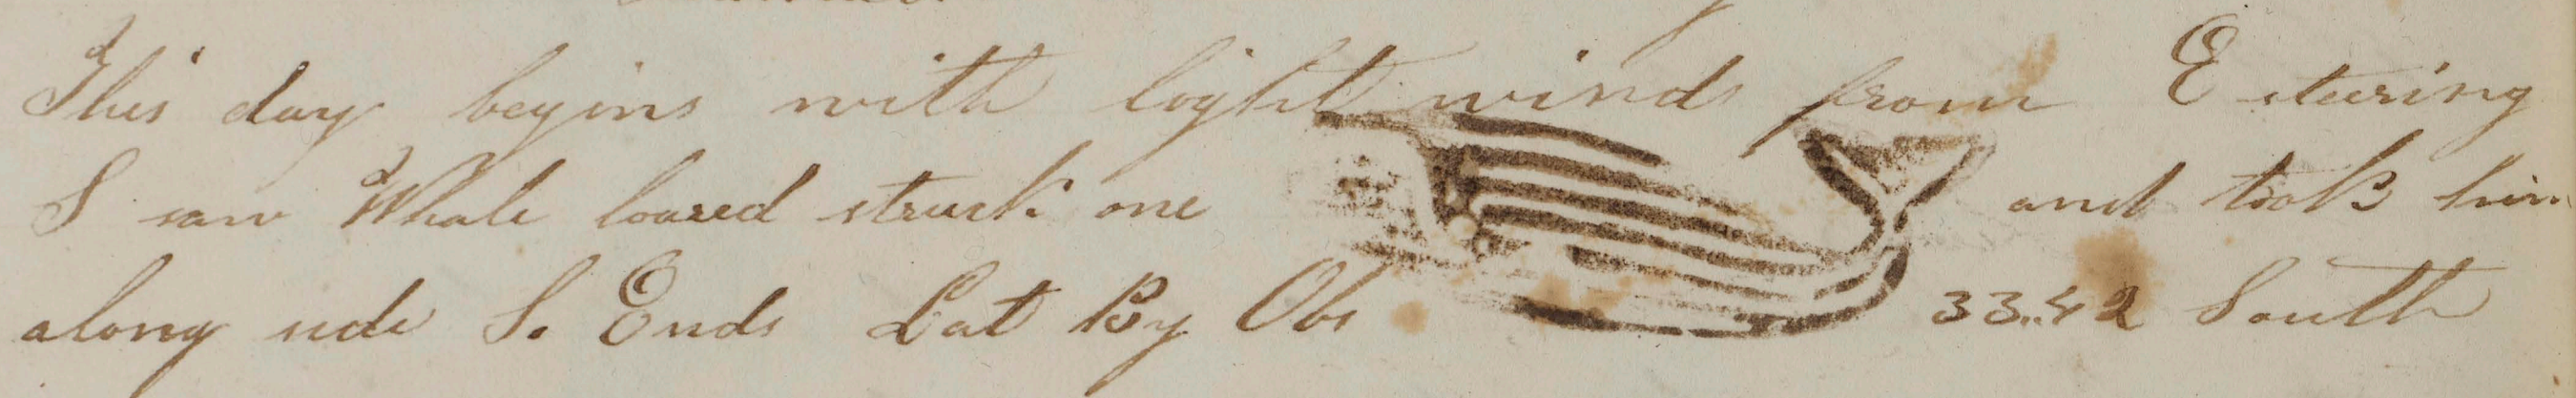 This day begins with light winds from E steering
S saw Whale loared struck one and took him
along side So Ends Lat By Obs 33..42 South